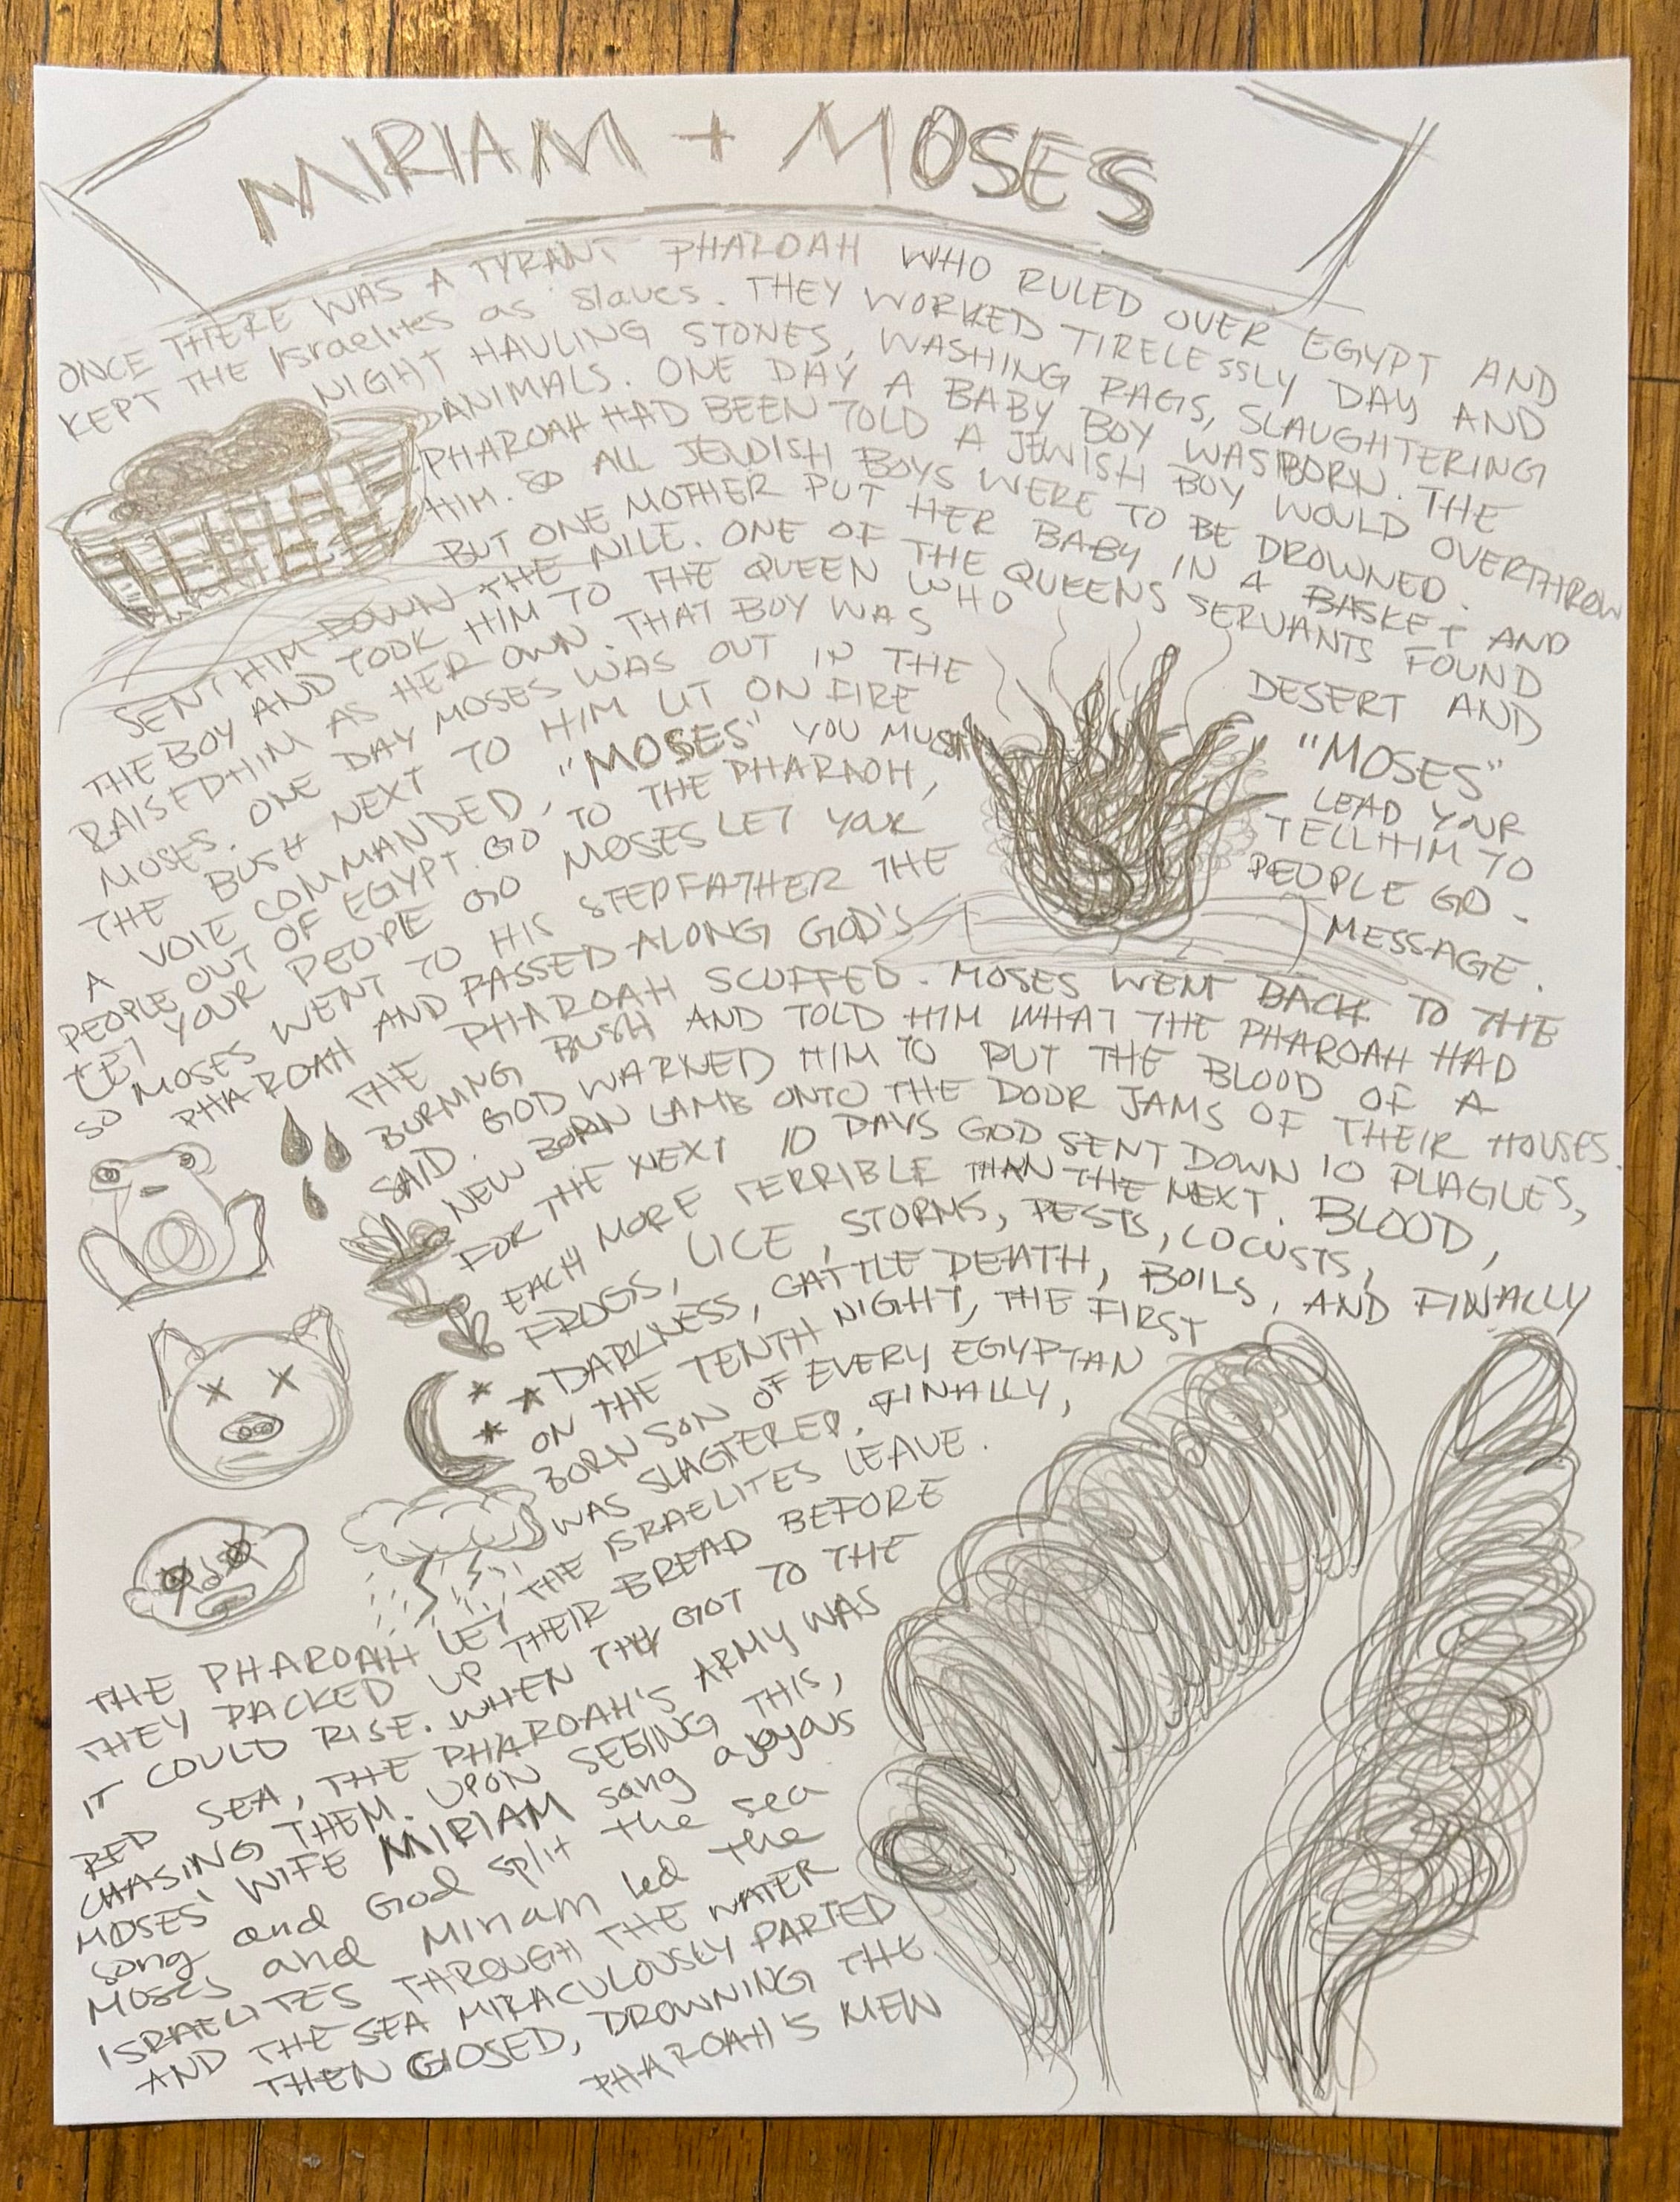 MIRIAM + MOSES
ONCE THERE WAS A TYRANT PHAROAH WHO RULED OVER EGYPT AND
KEPT THE Israelites as Slaves. THEY WORKED TIRELESSLY DAY AND
NIGHT HAULING STONES, WASHING RAGS, SLAUGHTERING
ANIMALS. ONE DAY A BABY BOY WAS BORN. THE
PHAROAH HAD BEEN TOLD A JEWISH BOY WOULD OVERTHROW
HIM. SO ALL JEWISH BOYS WERE TO BE DROWNED.
BUT ONE MOTHER PUT HER BABY IN A BASKET AND
SENT HIM DOWN THE NILE. ONE OF THE QUEENS SERVANTS FOUND
THE BOY AND TOOK HIM TO THE QUEEN WHO
RAISED HIM AS HER OWN. THAT BOY WAS
MOSES. ONE DAY MOSES WAS OUT IN THE DESERT AND
THE BUSH NEXT TO HIM LIT ON FIRE
A VOIE COMMANDED, "MOSES" "MOSES"
YOU MUST LEAD YOUR
PEOPLE OUT OF EGYPT. GO TO THE PHARAOH, TELL HIM TO
LET YOUR PEOPLE GO MOSES LET YOUR PEOPLE GO.
SO MOSES WENT TO HIS STEPFATHER THE
PHAROAH AND PASSED ALONG GOD'S MESSAGE.
THE PHAROAH SCUFFED. MOSES WENT BACK TO THE
BURNING BUSH AND TOLD HIM WHAT THE PHAROAH HAD
SAID. GOD WARNED HIM TO PUT THE BLOOD OF A
NEW BORN LAMB ONTO THE DOOR JAMS OF THEIR HOUSES.
FOR THE NEXT 10 DAYS GOD SENT DOWN 10 PLAGUES,
EACH MORE TERRIBLE THAN THE NEXT. BLOOD,
FROGS, LICE, STORMS, PESTS, LOCUSTS,
DARKNESS, CATTLE DEATH, BOILS, AND FINALLY
ON THE TENTH NIGHT, THE FIRST
BORN SON OF EVERY EGYPTAN
WAS SLAGTERED. FINALLY,
THE PHAROAH LET THE ISRAELITES LEAVE.
THEY PACKED UP THEIR BREAD BEFORE
IT COULD RISE. WHEN THY GOT TO THE
RED SEA, THE PHAROAH'S ARMY WAS
CHASING THEM. UPON SEEING THIS,
MOSES' WIFE MIRIAM sang a joyous
song and God split the sea
MOSES and Miriam led the
ISRAELITES THROUGH THE WATER
AND THE SEA MIRACULOUSLY PARTED
THEN CLOSED, DROWNING THE
PHAROAH'S MEN